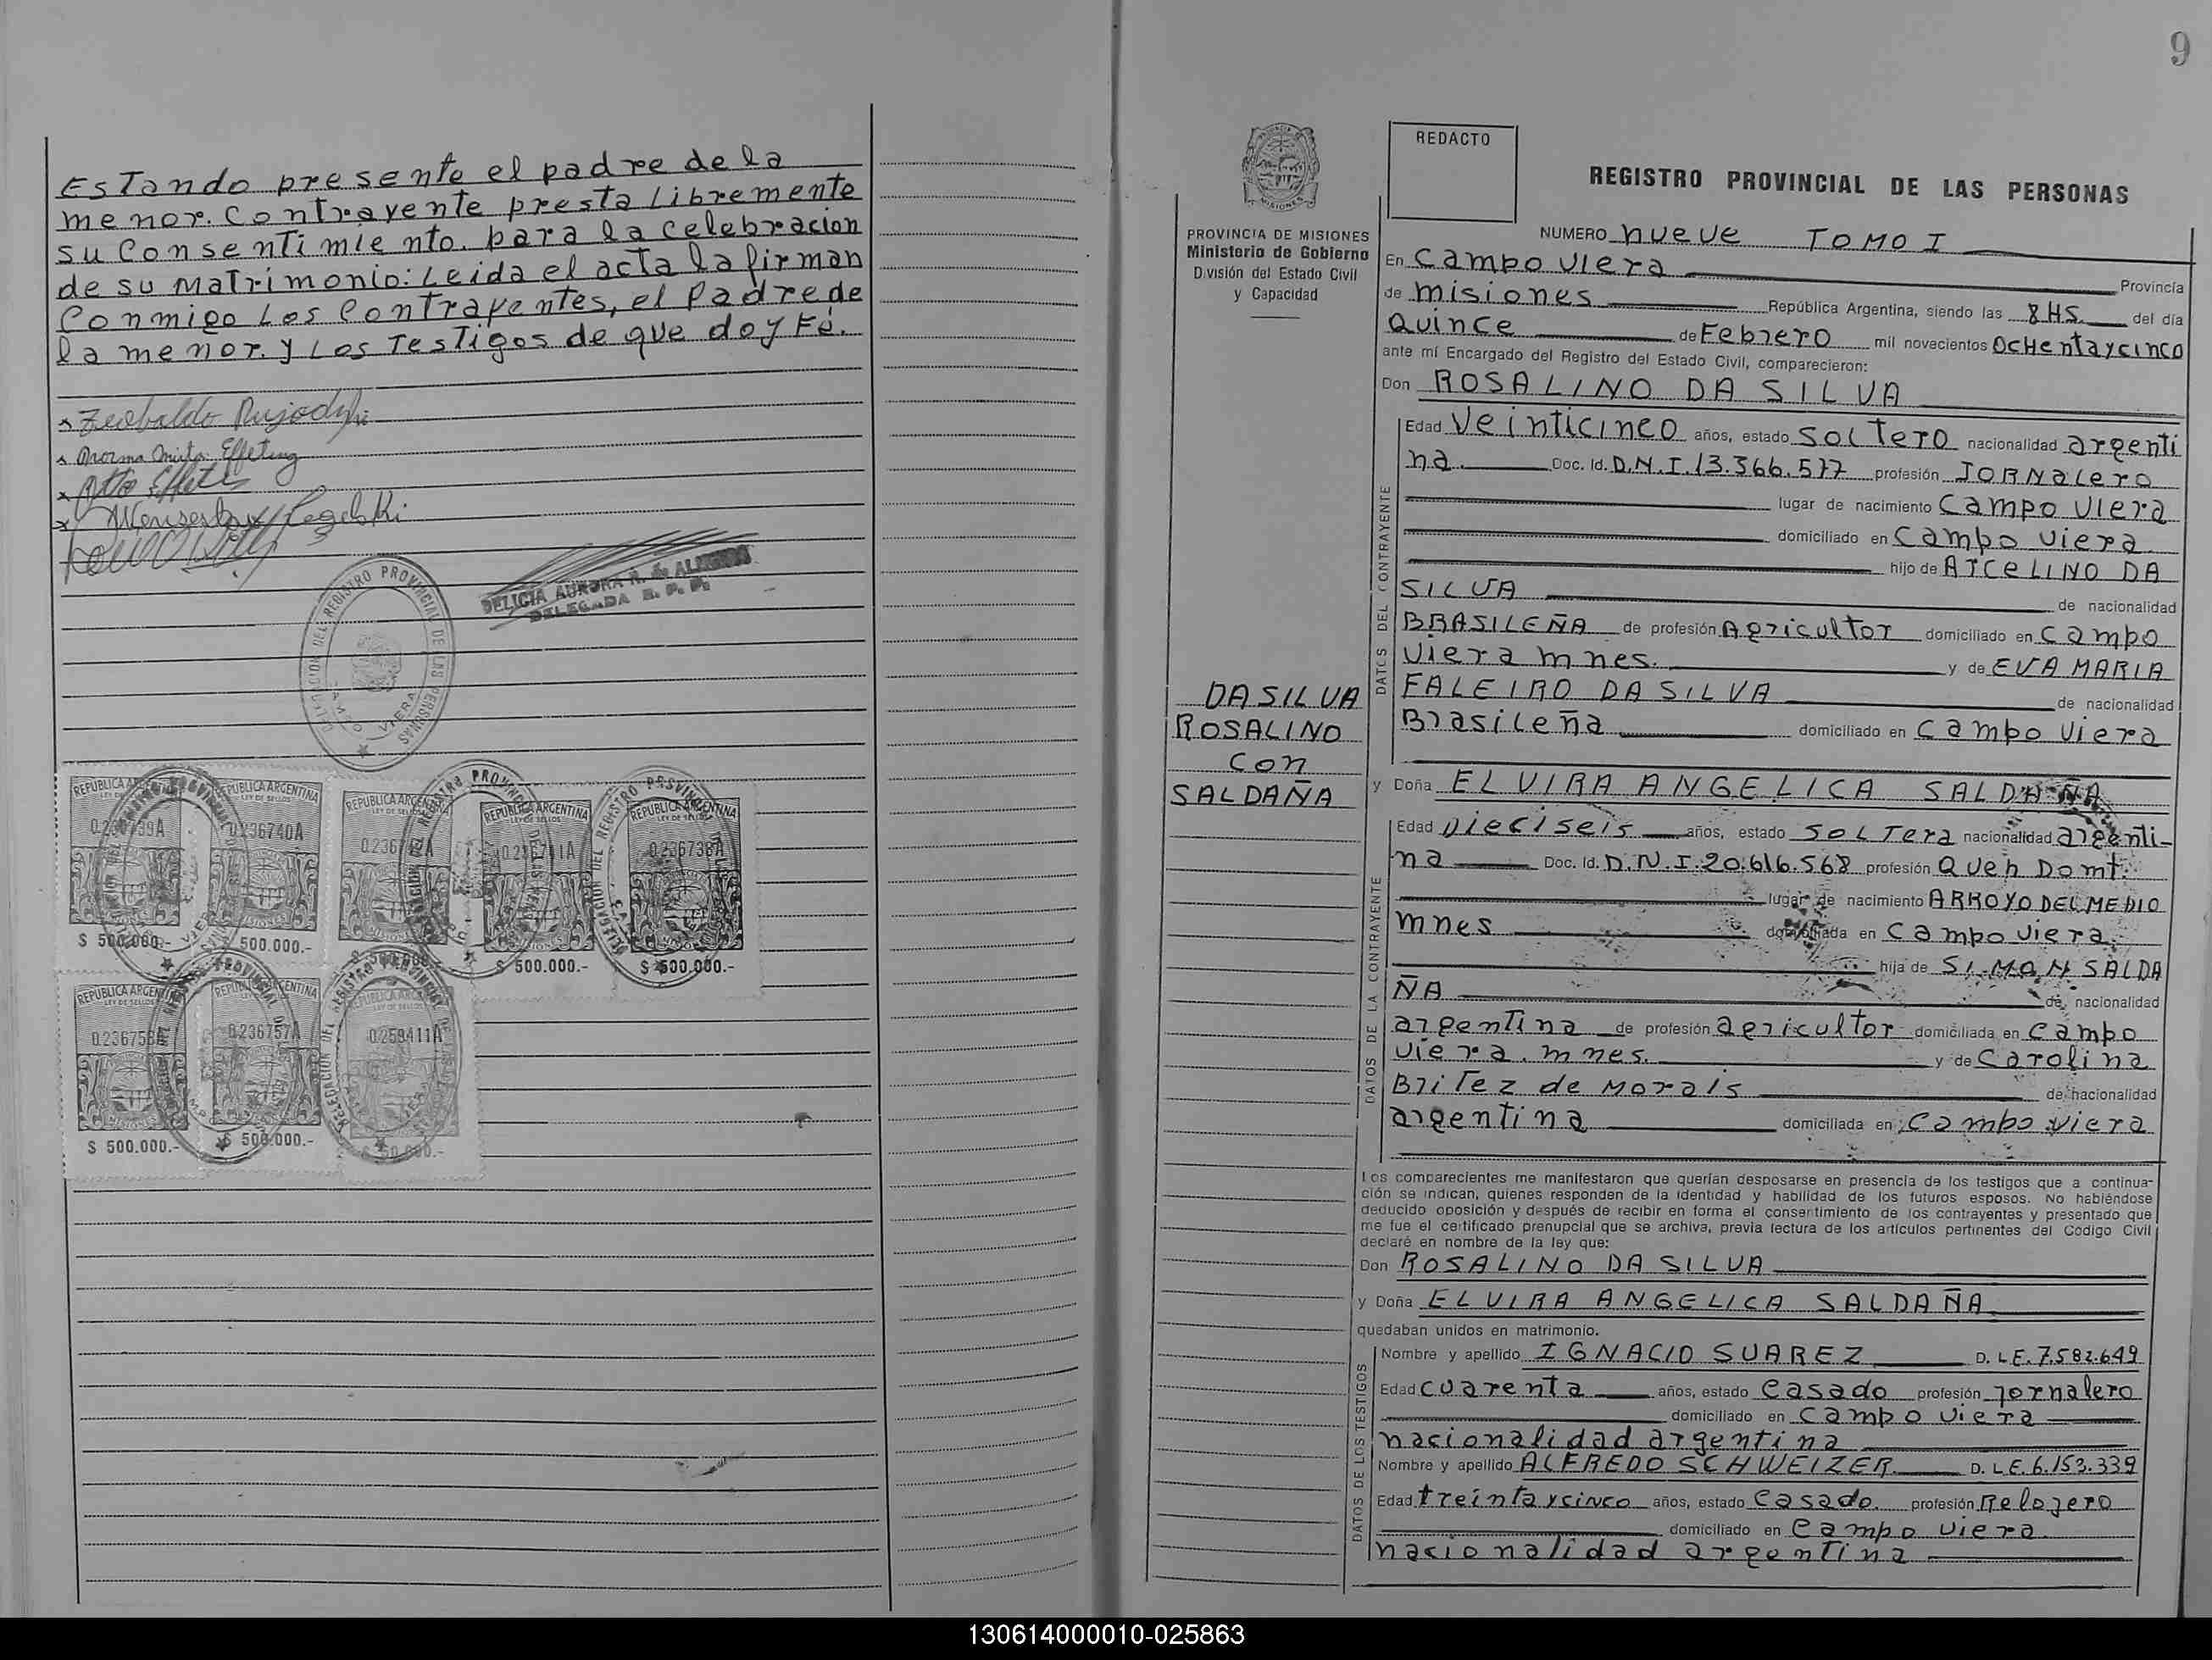 Estando presente el padre de la
menor. Contrayente presta libremente
su Consentimiento. para la celebracion
de su matrimonio: Leida el acta la firman
Conmigo Los Contrayentes, el Padre de
la menor. y Los Testigos de que doy Fé.
Norma Effeting
DELICIA AURORA R. de
DELEGADA R. P. P.
DELEGACION DEL REGISTRO PROVINCIAL DE LAS PERSONAS
CAMPO VIERA
REPUBLICA ARGENTINA
LEY DE SELLOS
0.236740A
$ 500.000.-
$ 500.000.-
REPUBLICA ARGENTINA
LEY DE SELLOS
$ 500.000.-
REPUBLICA ARGENTINA
LEY DE SELLOS
0.236738A
$ 500.000.-
REPUBLICA ARGENTINA
LEY DE SELLOS
$ 500.000.-
0.236757A
$ 500.000.-
0.259411A
9
REDACTO
REGISTRO PROVINCIAL DE LAS PERSONAS
PROVINCIA DE MISIONES
Ministerio de Gobierno
División del Estado Civil
y Capacidad
NUMERO nueve TOMO I
En Campo Viera Provincia
de misiones República Argentina, siendo las 8 HS. del día
Quince de Febrero mil novecientos OcHentaycinco
ante mí Encargado del Registro del Estado Civil, comparecieron:
Don ROSALINO DA SILVA
DATOS DEL CONTRAYENTE
Edad Veinticinco años, estado SOLTERO nacionalidad argenti
na. Doc. Id. D.N.I.13.366.577 profesión JORNALERO
lugar de nacimiento Campo Viera
domiciliado en Campo Viera
hijo de ATCELINO DA
SILVA de nacionalidad
BRASILEÑA de profesión Agricultor domiciliado en Campo
Viera mnes. y de EVA MARIA
FALEIRO DA SILVA de nacionalidad
Brasileña domiciliado en Campo Viera
DA SILVA
ROSALINO
con
SALDAÑA
y Doña ELVIRA ANGELICA SALDAÑA
DATOS DE LA CONTRAYENTE
Edad Dieciseis años, estado SOLTERA nacionalidad argenti-
na Doc. Id. D.N.I.20.616.568 profesión Queh Domt.
lugar de nacimiento ARROYO DEL MEDIO
mnes domiciliada en Campo Viera
hija de SIMON SALDA
ÑA de nacionalidad
argentina de profesión agricultor domiciliada en Campo
Viera. mnes. y de Carolina
Britez de Morais de nacionalidad
argentina domiciliada en Campo Viera
Los comparecientes me manifestaron que querían desposarse en presencia de los testigos que a continua-
ción se indican, quienes responden de la identidad y habilidad de los futuros esposos. No habiéndose
deducido oposición y después de recibir en forma el consentimiento de los contrayentes y presentado que
me fue el certificado prenupcial que se archiva, previa lectura de los artículos pertinentes del Codigo Civil
declaré en nombre de la ley que:
Don ROSALINO DA SILVA
y Doña ELVIRA ANGELICA SALDAÑA
quedaban unidos en matrimonio.
DATOS DE LOS TESTIGOS
Nombre y apellido IGNACIO SUAREZ D. LE. 7.582.649
Edad cuarenta años, estado Casado profesión Jornalero
domiciliado en Campo Viera
nacionalidad argentina
Nombre y apellido ALFREDO SCHWEIZER D. LE. 6.153.339
Edad treintaycinco años, estado Casado profesión Relojero
domiciliado en Campo Viera
nacionalidad argentina
130614000010-025863